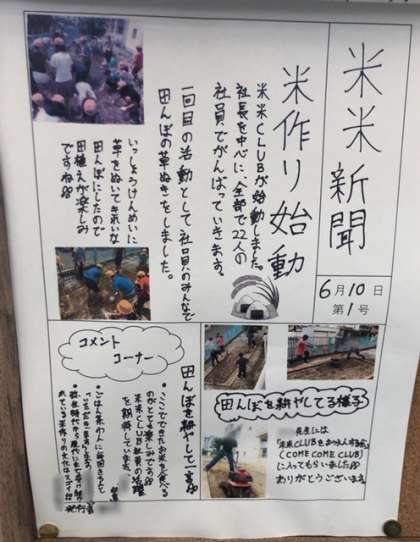 米米新聞
6月10日
第1号
米作り始動
米米CLUBが始動しました。
社長を中心に、全部で22人の
社員でがんばっていきます。
一回目の活動として、社員のみんなで
田んぼの草ぬきをしました。
いっしょうけんめいに
草をぬいてきれいな
田んぼにしたので
田植えが楽しみ
ですね
田んぼを耕やしてる様子
先生には
「米米CLUBをおうえんする会」
(COME COME CLUB)
に入ってもらいました
ありがとうございます。
コメント
コーナー
田んぼを耕やして一言
・ここでできたお米を食べる
のがとても楽しみです
米米CLUB社員の活躍
を期待しています。
・ごはん茶わんに毎回きちんと